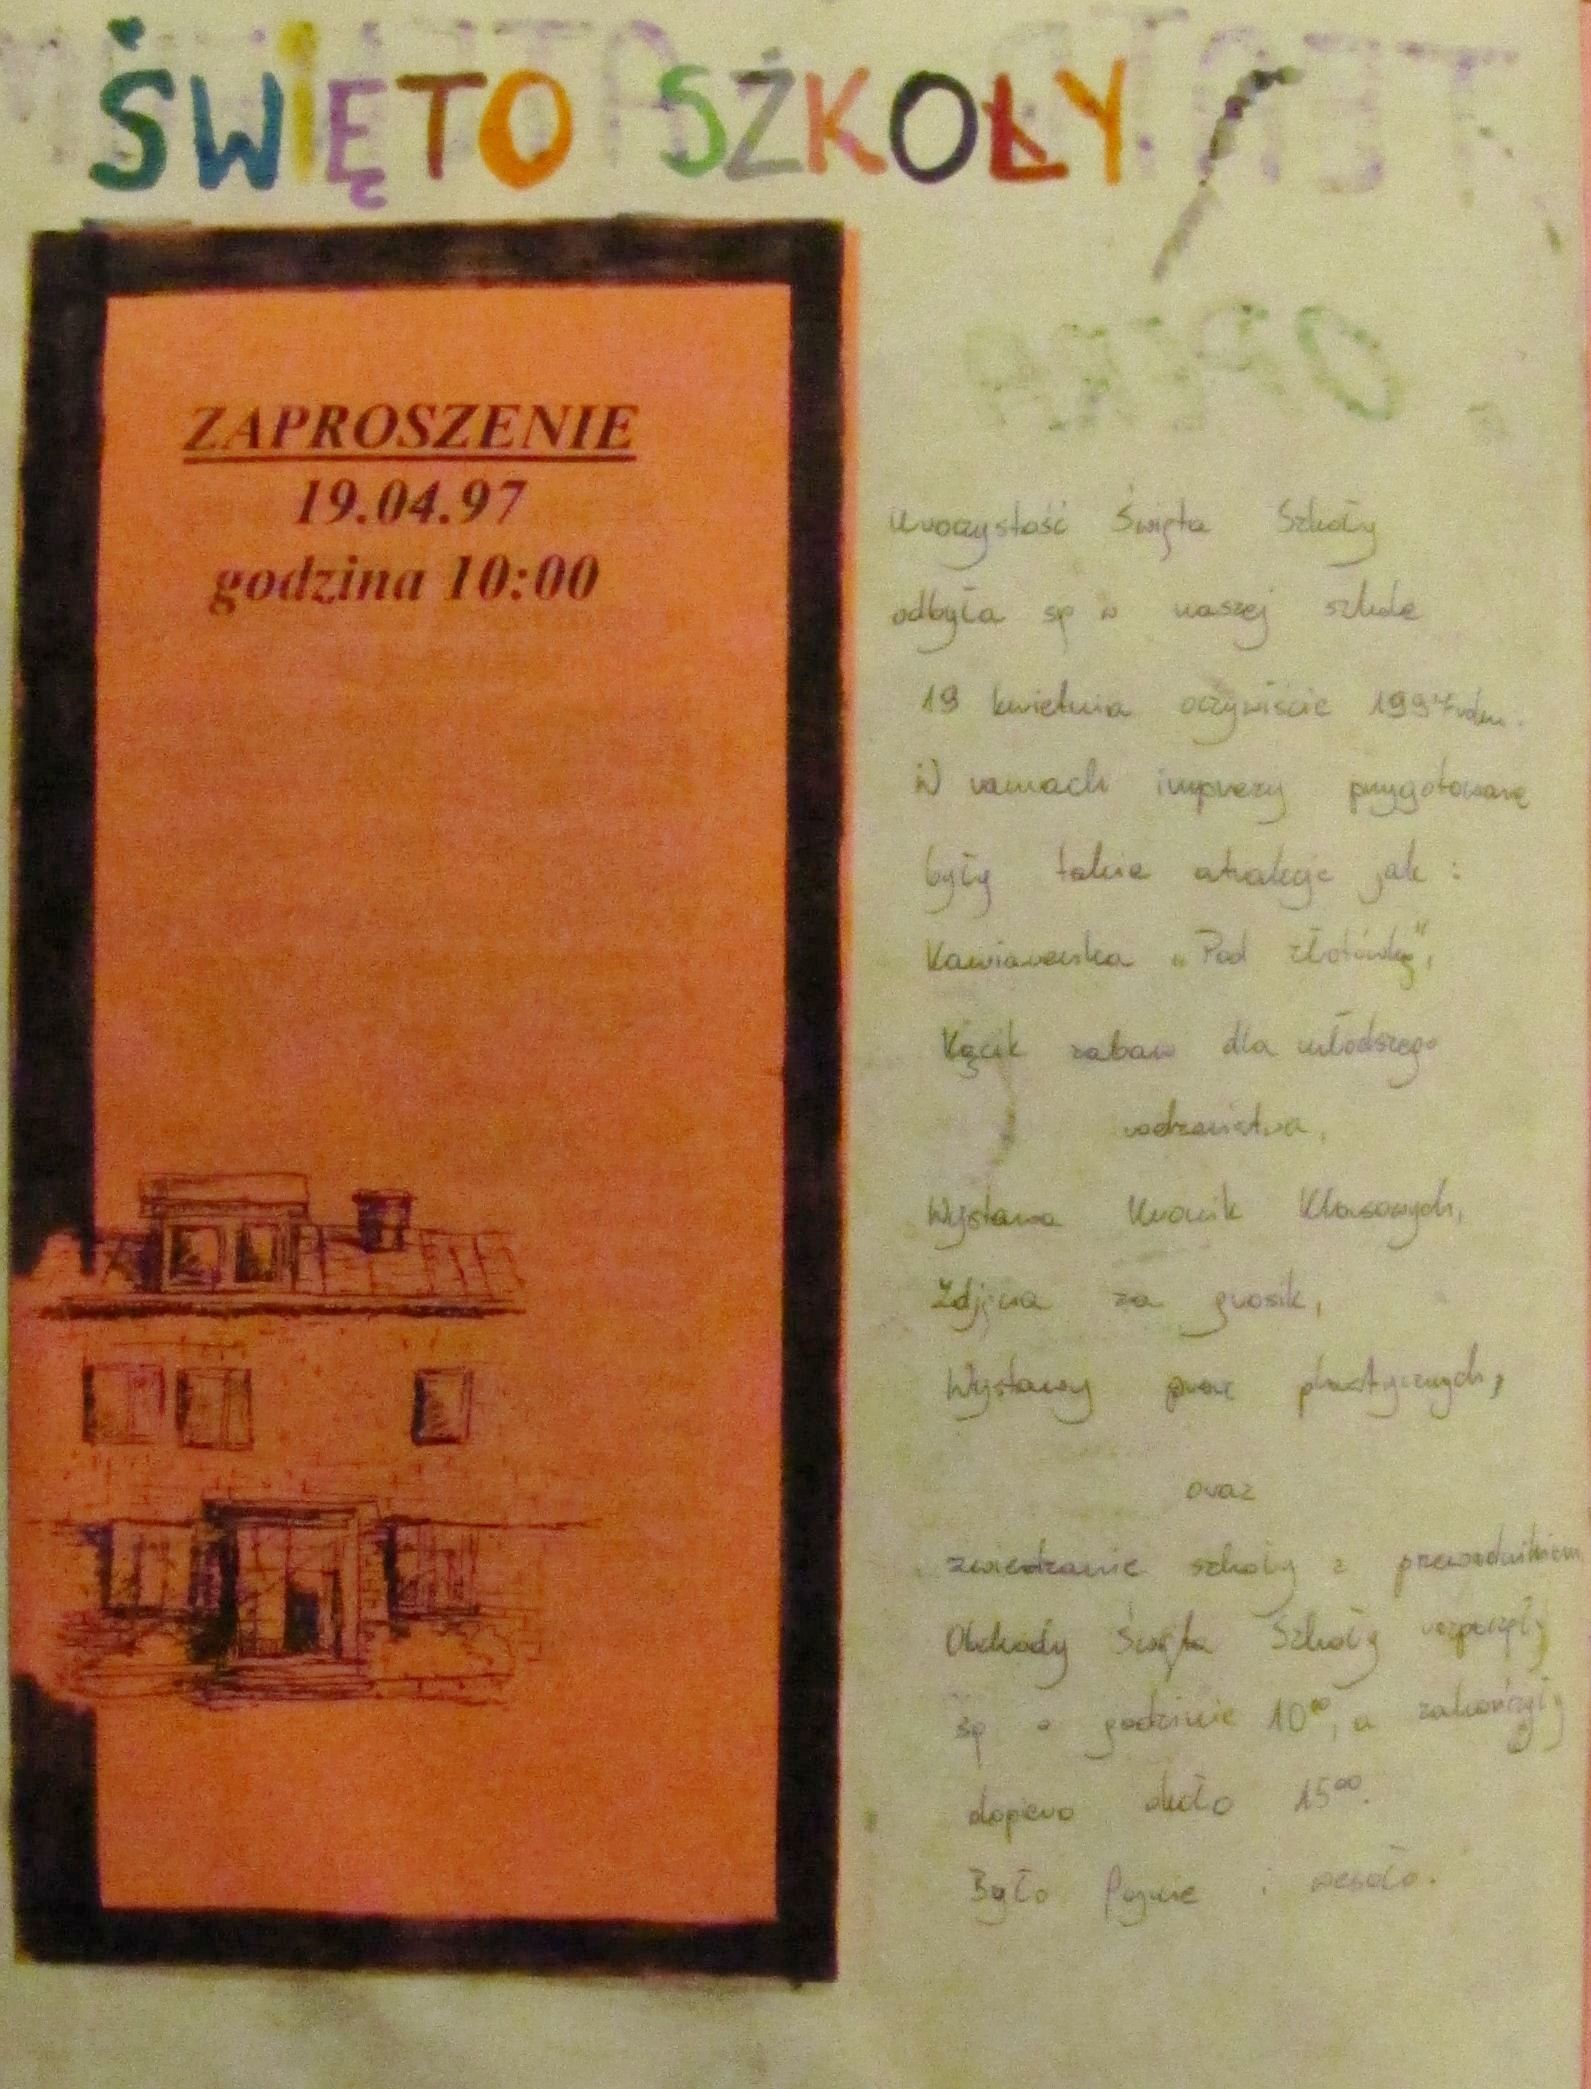 ŚWIĘTO SZKOŁY
ZAPROSZENIE
19.04.97
godzina 10:00
Uroczystość Święta Szkoły
odbyła się w naszej szkole
19 kwietnia oczywiście 1997
W ramach imprezy przygotowane
były takie atrakcje jak :
Kawiarenka „Pod złotówką",
Kącik zabaw dla młodszego
rodzeństwa,
Wystawa Kronik Klasowych,
Zdjęcia za grosik,
Wystawy prac plastycznych,
oraz
zwiedzanie szkoły z przewodnikiem
Obchody Święta Szkoły rozpoczęły
się o godzinie 10⁰⁰, a zakończyły
dopiero około 15⁰⁰.
Było Fajnie i wesoło.